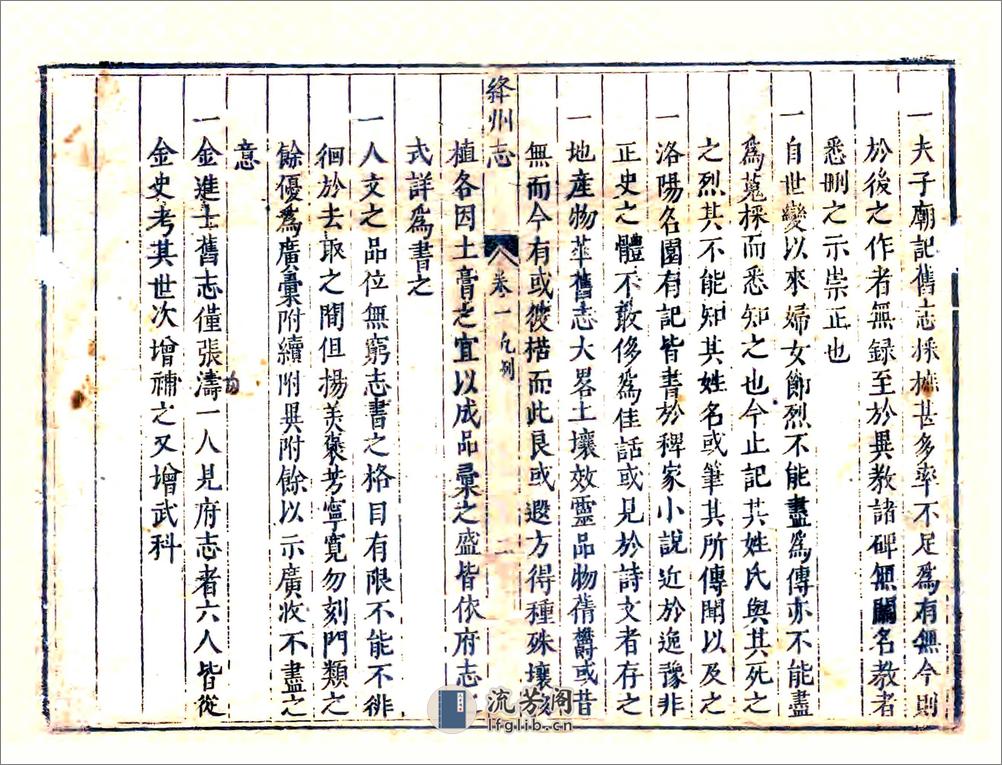 一夫子廟記舊志採摭甚多率不足爲有無今則
於後之作者無録至於異教諸碑無關名教者
悉刪之示崇正也
一自世變以來婦女節烈不能盡爲傳亦不能盡
爲蒐採而悉知之也今止記其姓氏與其死之
之烈其不能知其姓名或筆其所傳聞以及之
一洛陽名園有記皆書於稗家小說近於逸豫非
正史之體不敢侈爲佳話或見於詩文者存之
一地產物華舊志大畧土壤效靈品物蒨欝或昔
無而今有或彼楛而此良或遐方得種殊壤
絳州志 卷一凡例 二
植各因土膏之宜以成品彙之盛皆依府志
式詳爲書之
一人文之品位無窮志書之格目有限不能不徘
徊於去取之間但揚美褒芳寧寛勿刻門類之
餘優爲廣彙附續附異附餘以示廣收不盡之
意
一金進士舊志僅張濤一人見府志者六人皆從
金史考其世次增補之又增武科
流芳阁
lfglib.cn